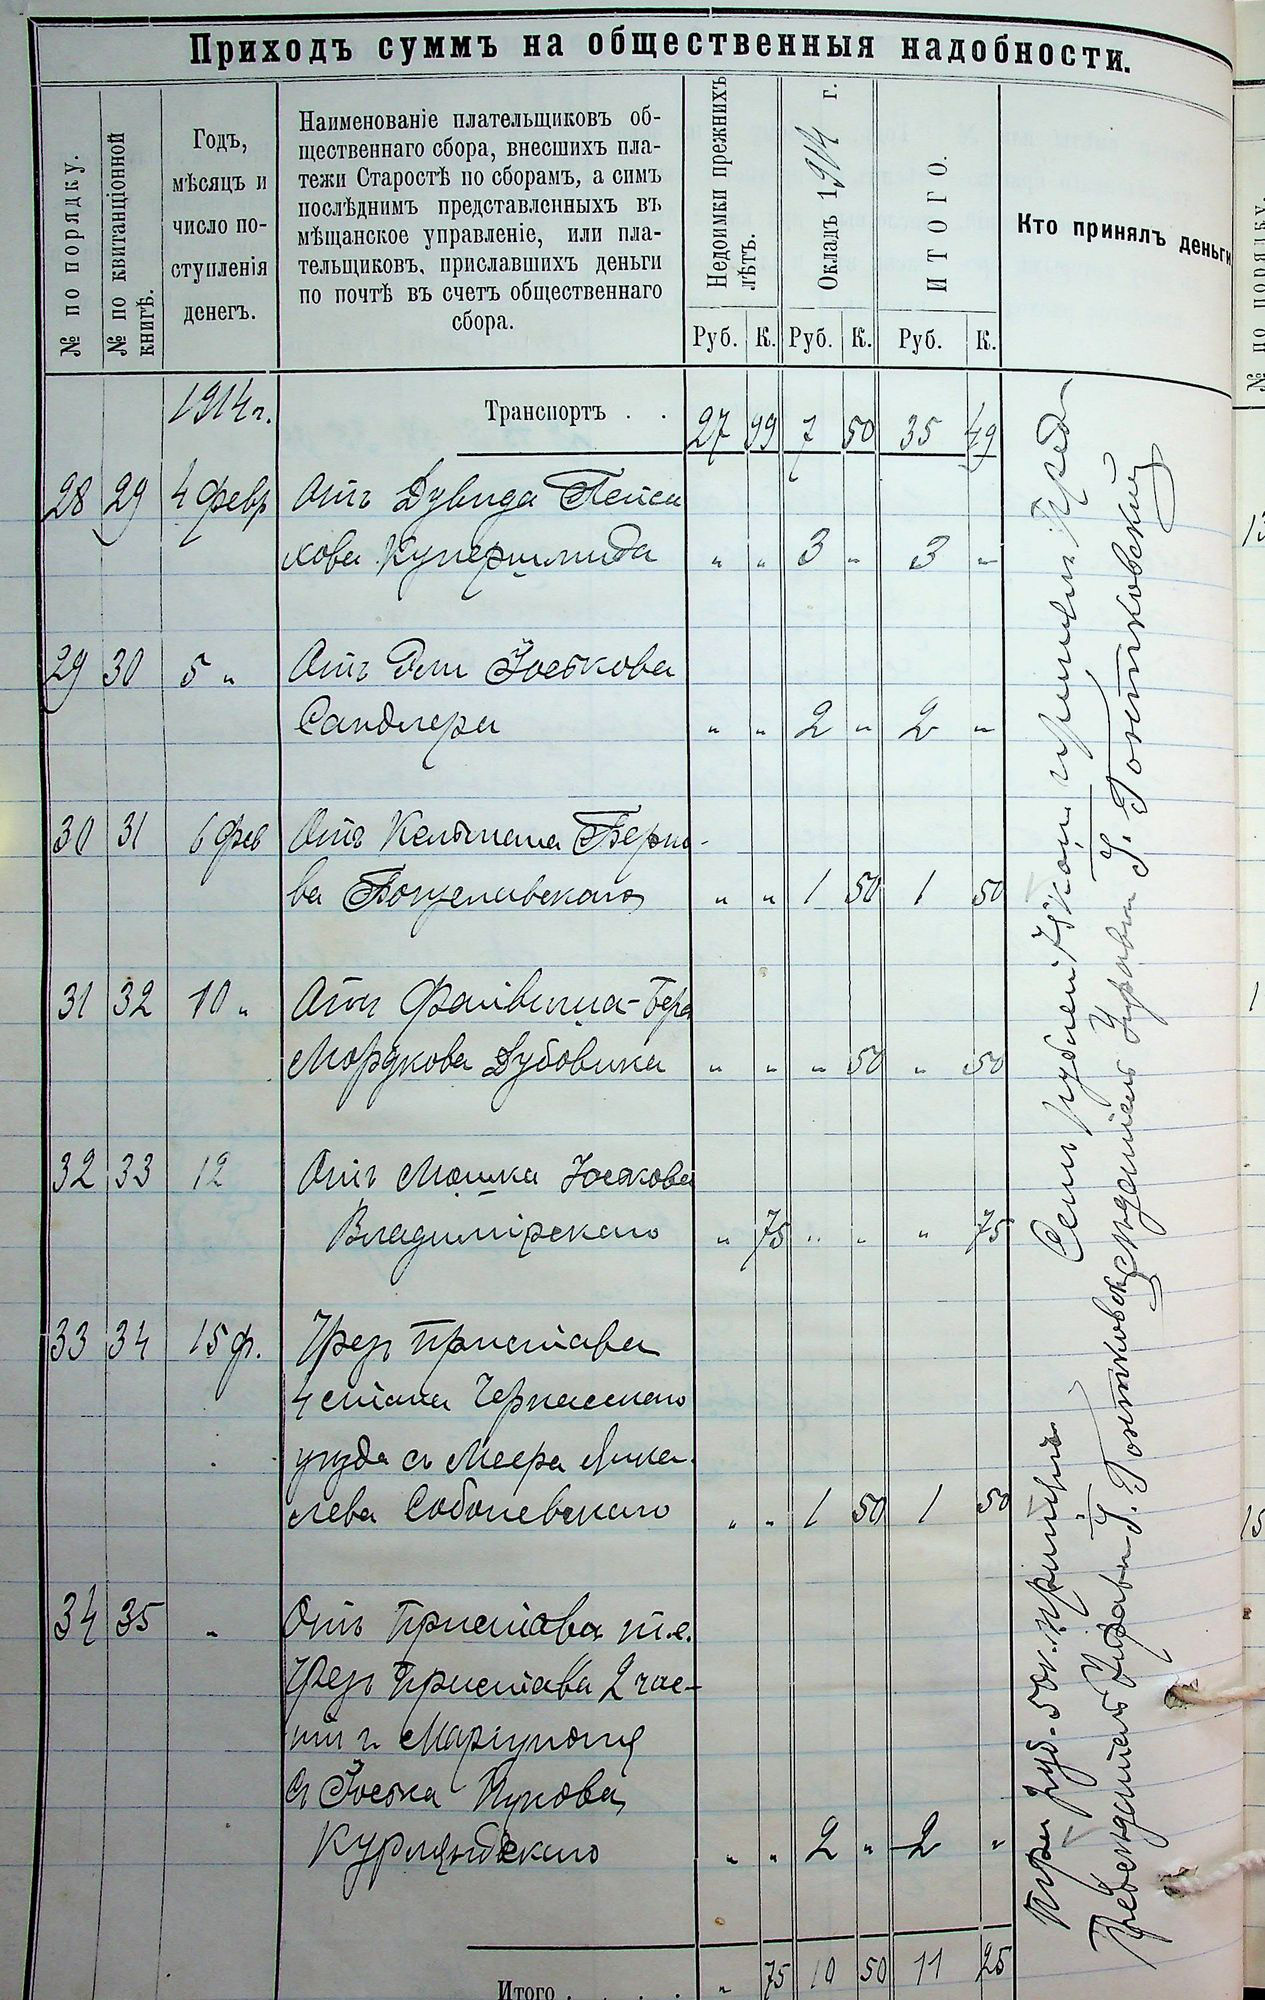 Приходъ суммъ на общественныя надобности.
№ по порядку.
№ по квитанціонной книгѣ.
Годъ,
мѣсяцъ и
число по-
ступленія
денегъ.
Наименованіе плательщиковъ об-
щественнаго сбора, внесшихъ пла-
тежи Старостѣ по сборамъ, а симъ
послѣднимъ представленныхъ въ
мѣщанское управленіе, или пла-
тельщиковъ, приславшихъ деньги
по почтѣ въ счетъ общественнаго
сбора.
Недоимки прежнихъ лѣтъ.
Окладъ 1914 г.
ИТОГО.
Кто принялъ деньги
Руб. К. Руб. К. Руб. К.
1914 г. Транспортъ . . 27 99 7 50 35 49
28 29 4 февр Отъ Дувида Пейса
хова Купершмида " " 3 " 3 "
29 30 5 " Отъ Эли Іоськова
Сандлера " " 2 " 2 "
30 31 6 фев Отъ Кельмана Берко-
ва Богуславскаго " " 1 50 1 50
31 32 10 " Отъ Файвиша-Бера
Мордкова Дубовика " " " 50 " 50
32 33 12 Отъ Мошка Юськова
Владимірскаго " 75 " " " 75
33 34 15 ф. Чрез Пристава
4 стана Черкасскаго
уѣзда съ Меера
лева Соболевскаго " " 1 50 1 50
34 35 " Отъ Пристава т.е.
Чрез Пристава 2 час-
ти г. Маріуполя
съ Іоська
Курляндскаго " " 2 " 2 "
Итого . . . . " 75 10 50 11 25
Семь рублей 75 коп принялъ Пред-
сѣдатель Управы Г. Гонтковскій
Три руб. 50 к. принялъ
Предсѣдатель Управы Г. Гонтковскій